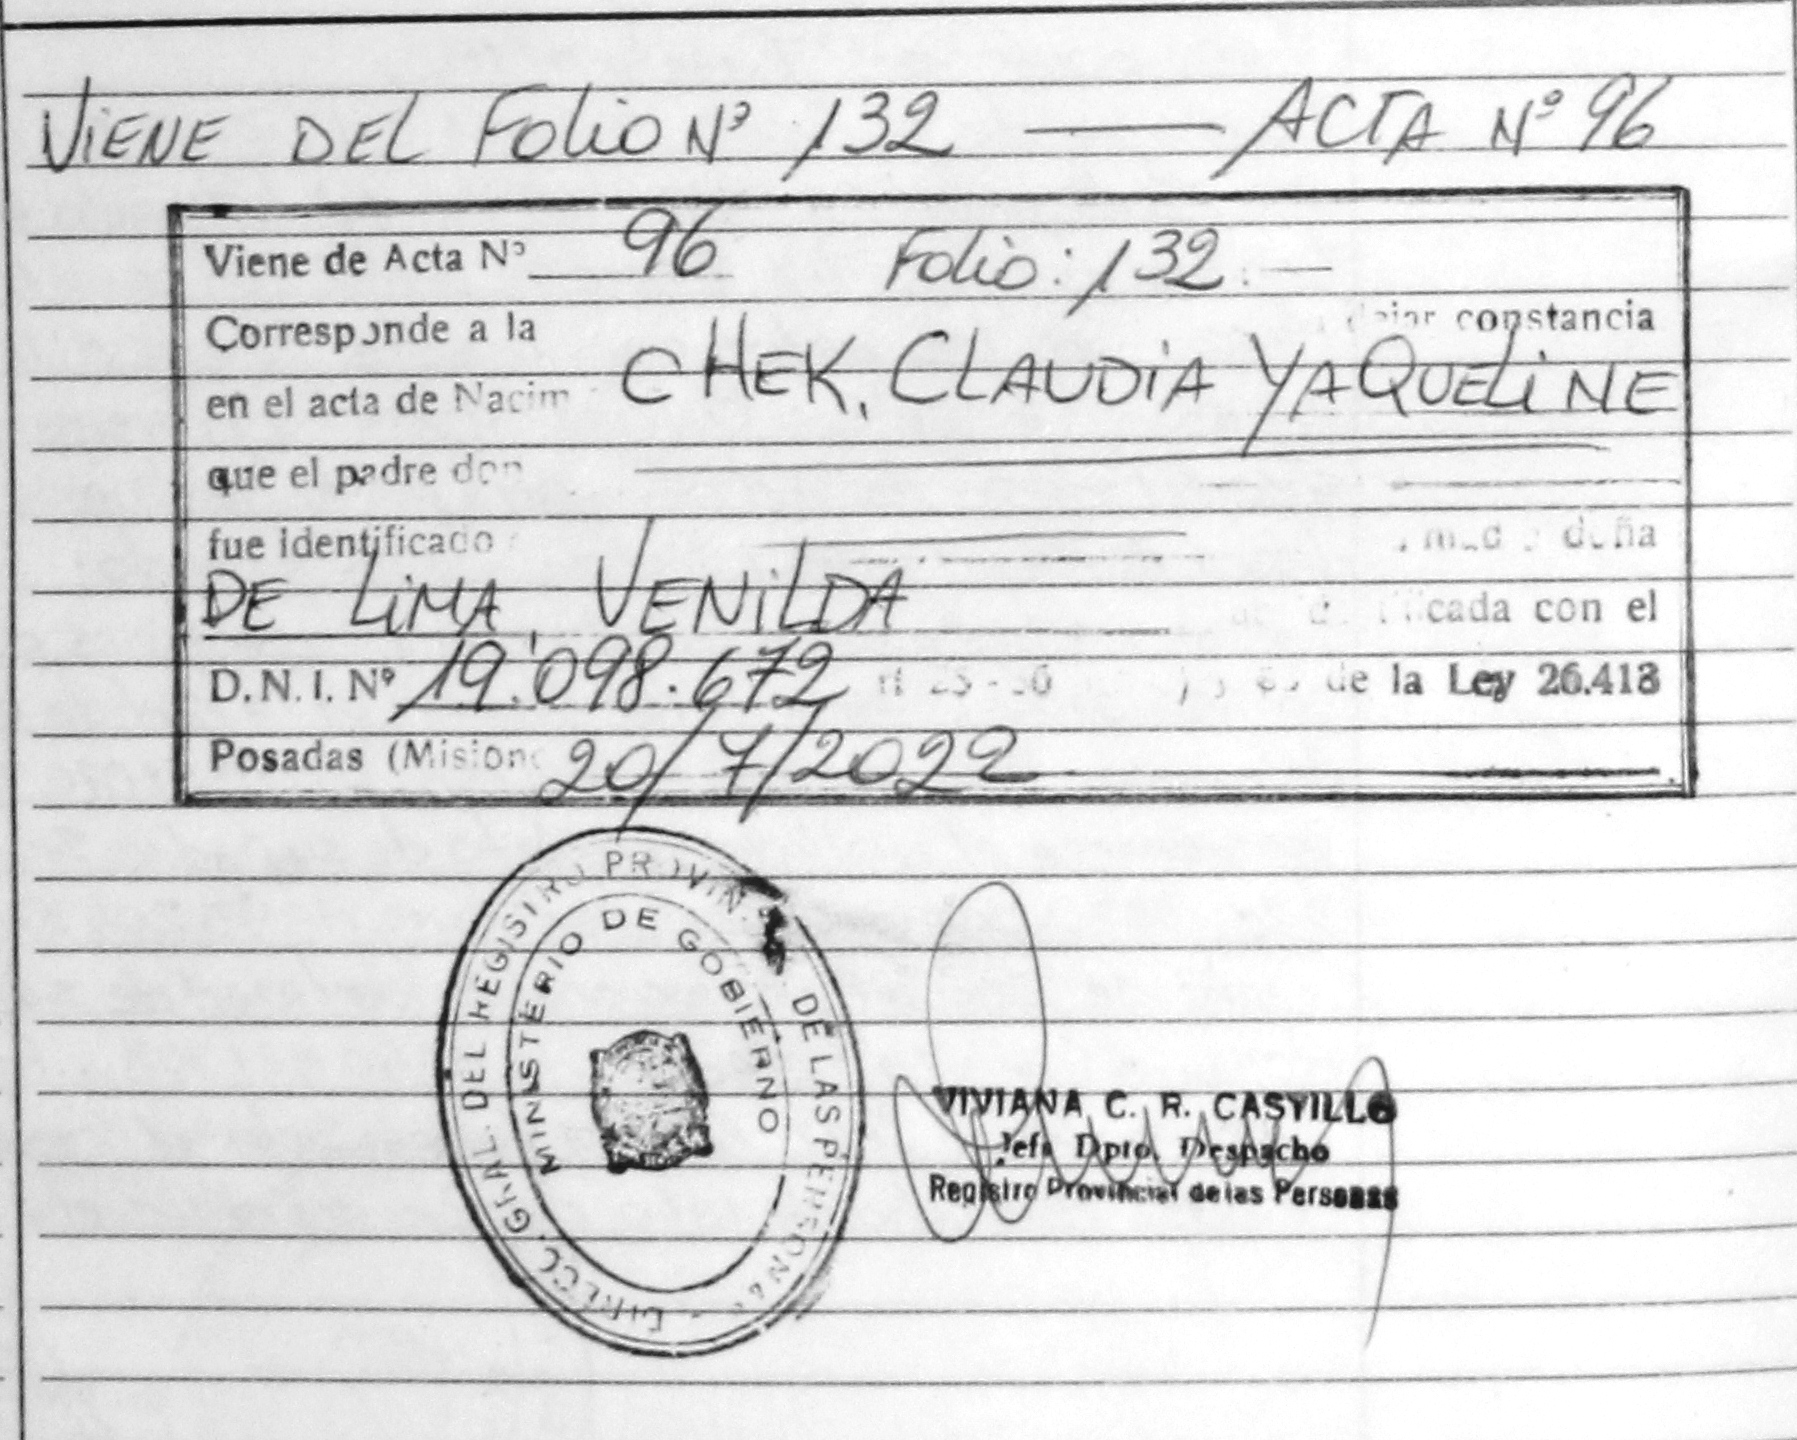 VIENE DEL FOLIO Nº 132 — ACTA Nº 96
Viene de Acta Nº 96 Folio: 132.—
Corresponde a la dejar constancia
en el acta de Nacim CHEK, CLAUDIA YAQUELINE
que el padre don
fue identificado doña
DE LIMA, VENILDA cada con el
D.N.I. Nº 19.098.672 de la Ley 26.413
Posadas (Mision 20/7/2022
DIRECC. GRAL. DEL REGISTRO PROVIN. DE LAS PERSONAS
MINISTERIO DE GOBIERNO
VIVIANA C. R. CASTILLO
Jefe Dpto. Despacho
Registro Provincial de las Personas